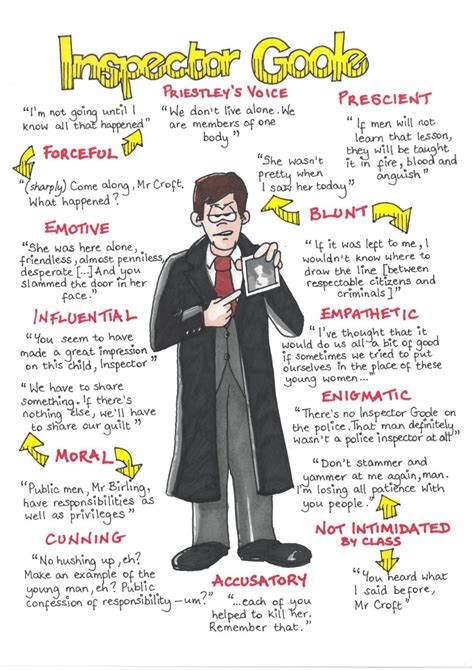 Inspector Goole
PRIESTLEY'S VOICE
"We don't live alone. We
are members of one
body"
PRESCIENT
"If men will not
learn that lesson,
they will be taught
it in fire, blood and
anguish"
"I'm not going until I
know all that happened"
FORCEFUL
"(sharply) Come along, Mr Croft.
What happened?
"She wasn't
pretty when
I saw her today"
BLUNT
"If it was left to me, I
wouldn't know where to
draw the line [between
respectable citizens and
criminals]"
EMOTIVE
"She was here alone,
friendless, almost penniless,
desperate [...] And you
slammed the door in her
face."
INFLUENTIAL
"You seem to have
made a great impression
on this child, Inspector"
EMPATHETIC
"I've thought that it
would do us all a bit of good
if sometimes we tried to put
ourselves in the place of these
young women..."
"We have to share
something. If there's
nothing else, we'll have
to share our guilt"
MORAL
"Public men, Mr Birling,
have responsibilities as
well as privileges"
ENIGMATIC
"There's no Inspector Goole on
the police. That man definitely
wasn't a police inspector at all"
"Don't stammer and
yammer at me again, man.
I'm losing all patience with
you people"
NOT INTIMIDATED
BY CLASS
"You heard what
I said before,
Mr Croft"
CUNNING
"No hushing up, eh?
Make an example of the
young man, eh? Public
confession of responsibility – um?"
ACCUSATORY
"...each of you
helped to kill her.
Remember that."